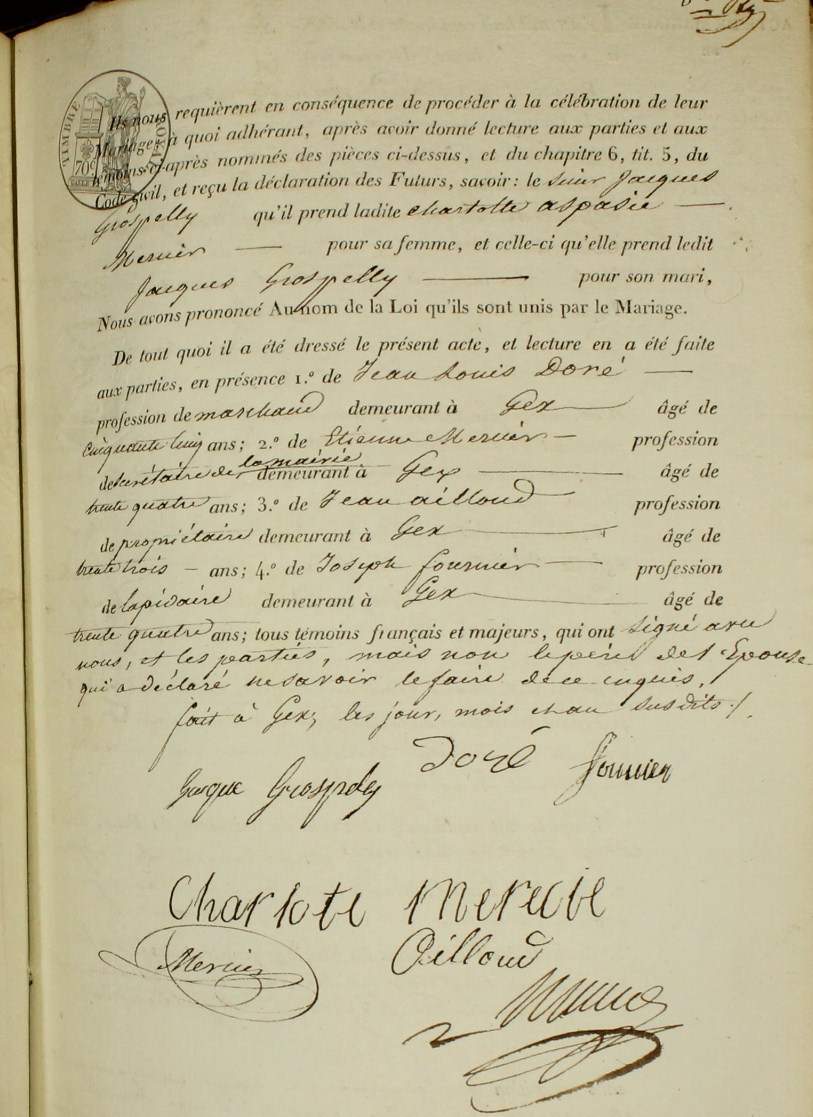 TIMBRE ROYAL
70c
Ils nous requièrent en conséquence de procéder à la célébration de leur
Mariage; à quoi adhérant, après avoir donné lecture aux parties et aux
témoins ci-après nommés des pièces ci-dessus, et du chapitre 6, tit. 5, du
Code civil, et reçu la déclaration des Futurs, savoir: le sieur Jacques
Grospelly qu'il prend ladite Charlotte aspasie —
Mercier — pour sa femme, et celle-ci qu'elle prend ledit
Jacques Grospelly — pour son mari,
Nous avons prononcé Au nom de la Loi qu'ils sont unis par le Mariage.
De tout quoi il a été dressé le présent acte, et lecture en a été faite
aux parties, en présence 1.º de Jean Louis Doré —
profession de marchand demeurant à Gex — âgé de
Cinquante cinq ans; 2.º de Etienne Mercier — profession
de secrétaire de la mairie demeurant à Gex — âgé de
trente quatre ans; 3.º de Jean ailloud — profession
de propriétaire demeurant à Gex — âgé de
trente trois — ans; 4.º de Joseph fournier — profession
de lapidaire demeurant à Gex — âgé de
trente quatre ans; tous témoins français et majeurs, qui ont signé avec
nous, et les parties, mais non le père de l'Epouse
qui a déclaré ne savoir le faire de ce enquis.
fait à Gex, les jour, mois et an susdits.
Doré fournier
Jacque Grosprely
Charlote Merecie
Mercier Ailloud